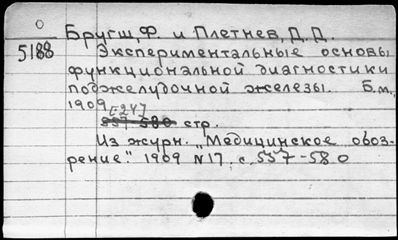 Бругш, Ф. и Плетнев, Д. Д.
5188
Экспериментальные основы
функциональной диагностики
поджелудочной железы. Б.м.,
1909
[24]
557-580 стр.
Из журн. "Медицинское обоз-
рение". 1909 №17, с. 557-580